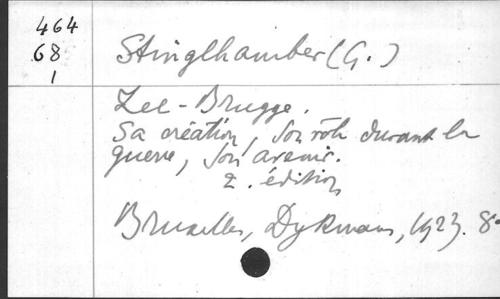 464
68
1
Stinglhamber (G.)
Zee-Brugge.
Sa création, Son rôle durant la
guerre, Son avenir.
2. édition
Bruxelles, Dykmans, 1923. 8°